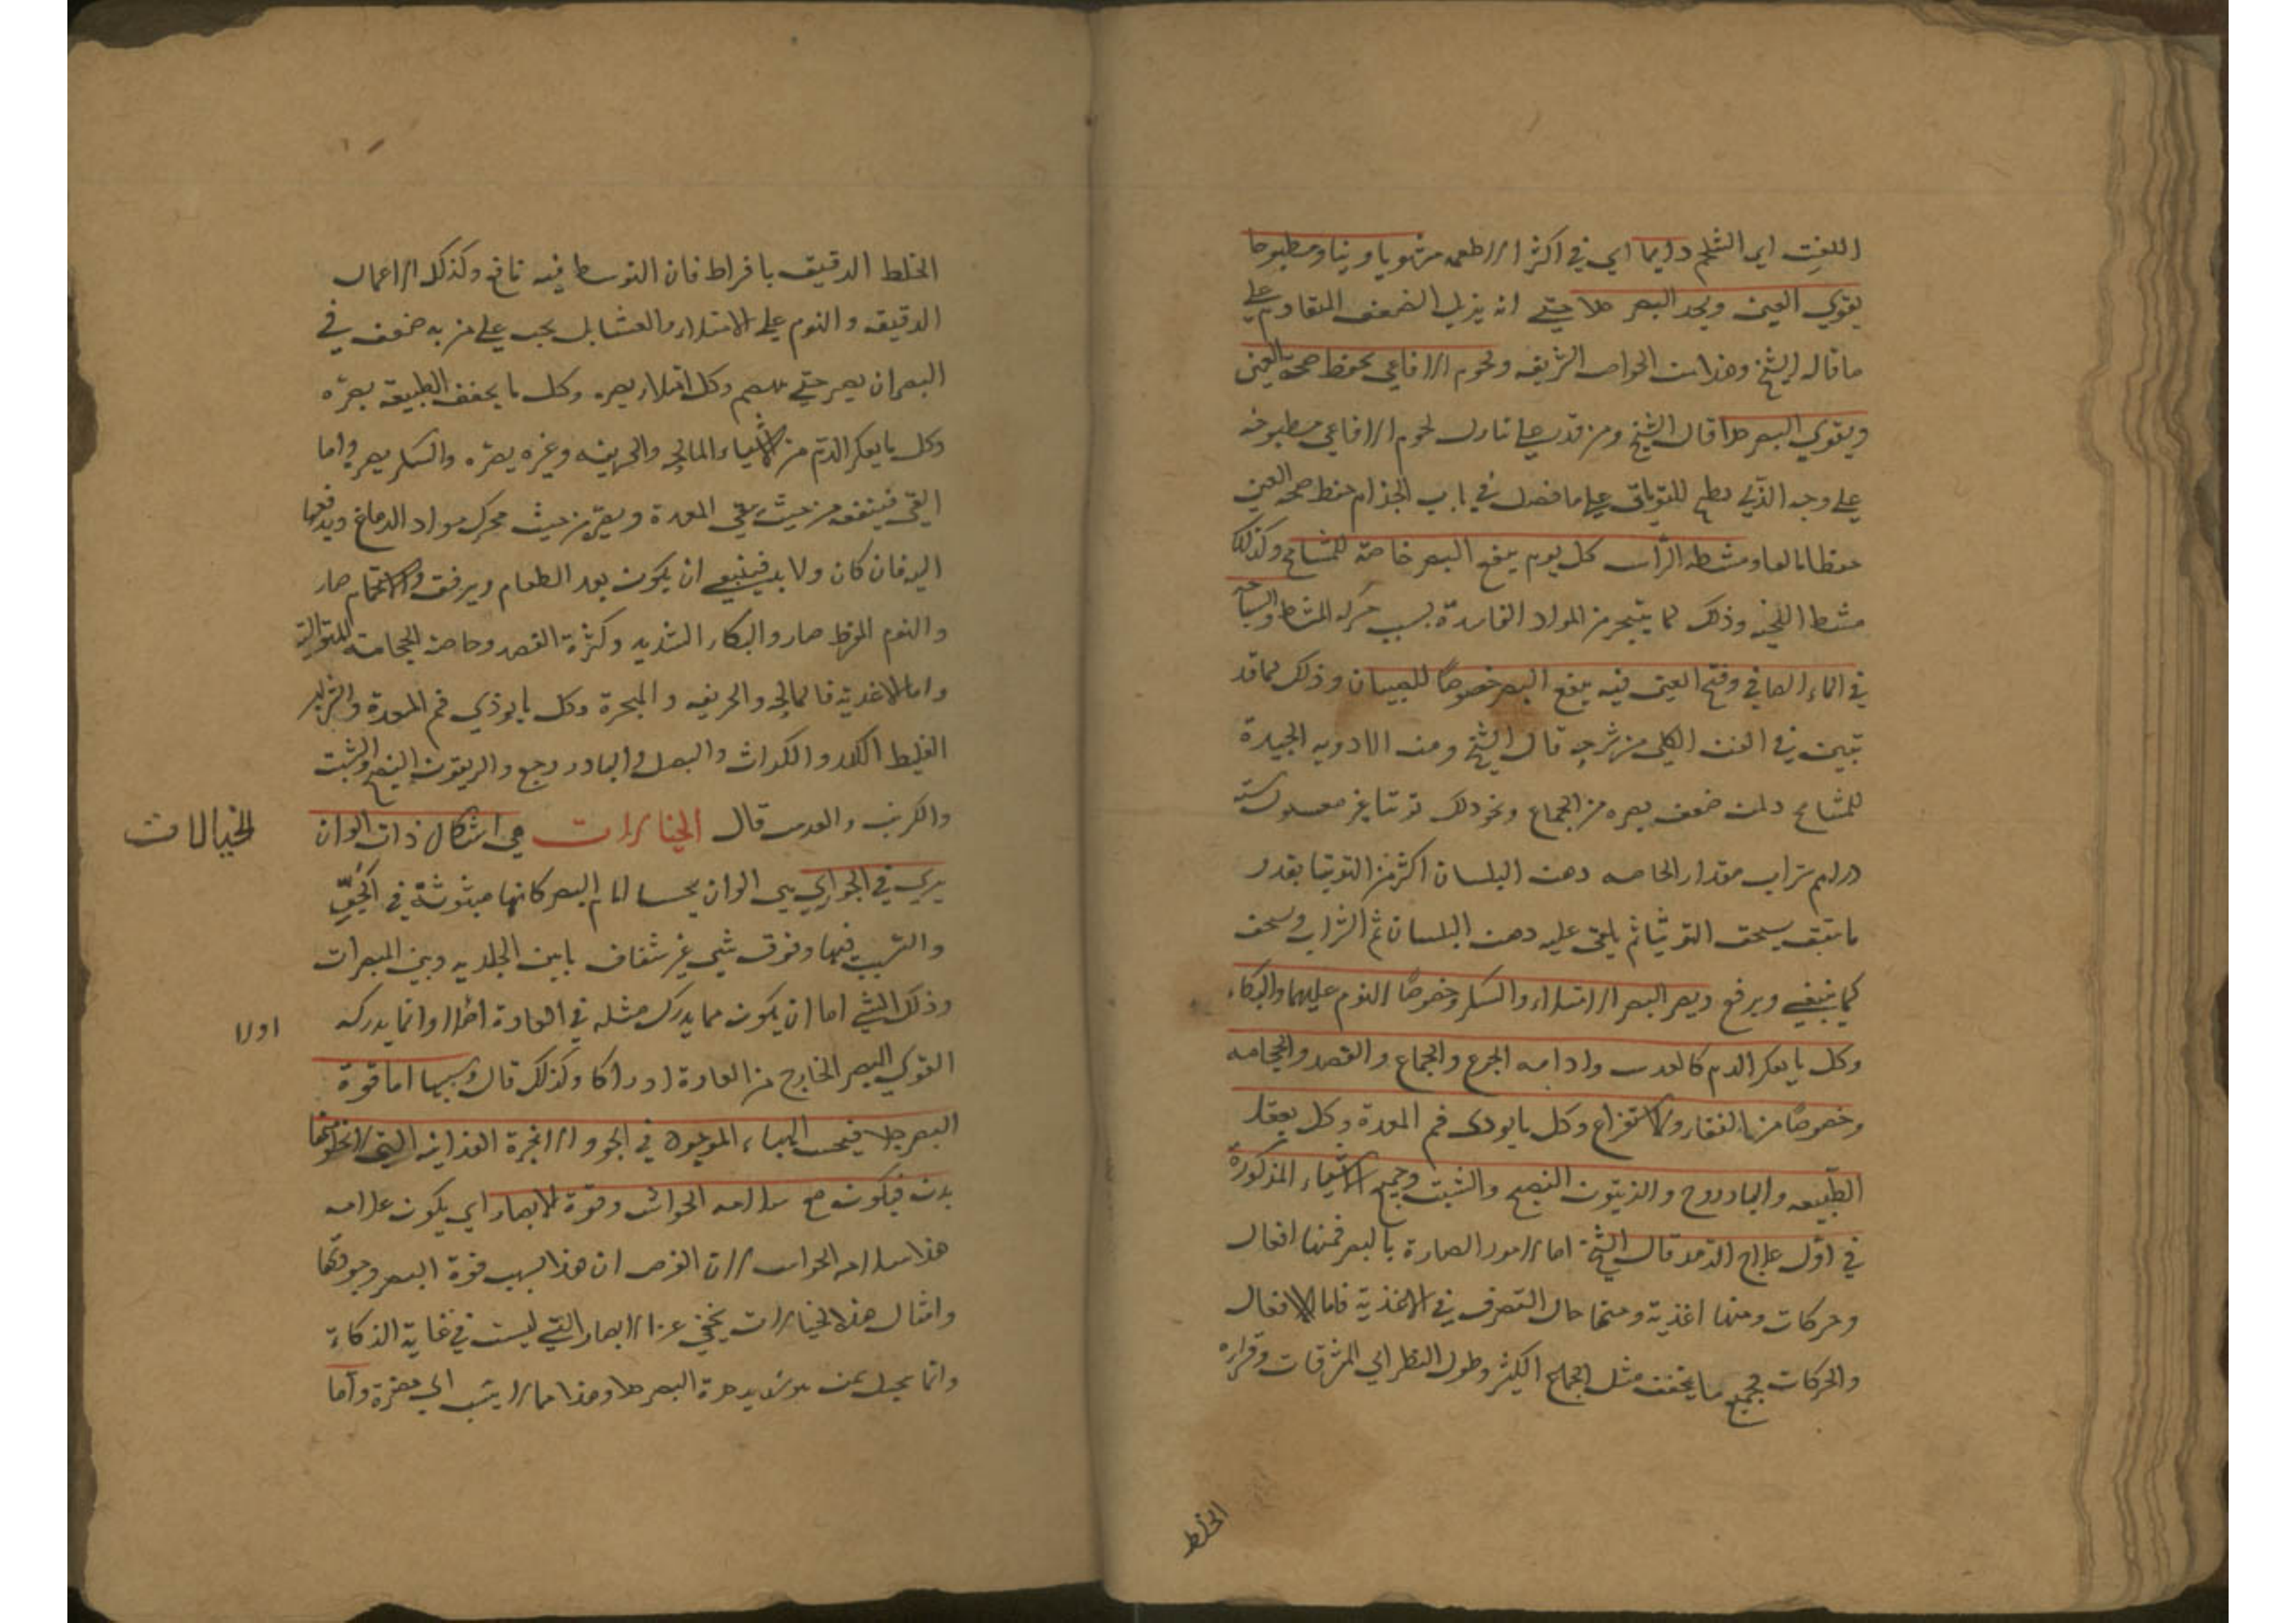 اللفت اي الشلجم دايما اي في اكثر الاطعمه مشويا ونيا ومطبوخا
يقوي العين ويحد البصر جلا حتي انه يزيل الضعف المتقادم علي
ما قاله الشيخ وهذا من الخواص الشريفه ولحوم الافاعي تحفظ صحة العين
ويقوي البصر جدا قال الشيخ ومن قدر علي تناول لحوم الافاعي مطبوخه
علي وجه الذي يطبخ للترياق علي ما فصل في باب الجذام حفظ صحة العين
حفظا بالغا ومشط الراس كل يوم ينفع البصر خاصة للمشايخ وكذلك
مشط اللحيه وذلك لما يتبخر من المواد الفاسدة بسبب حركة المشط والسباحه
في الماء الصافي وفتح العين فيه ينفع البصر خصوصا للصبيان وذلك لما قد
تبين في الفن الكلي من شرحه قال الشيخ ومن الادويه الجيدة
للمشايخ ولمن ضعف بصره من الجماع ونحو ذلك توتيا غير مغسول ستة
درهم شراب مقدار الحاجه دهن البلسان اكثر من التوتيا بقدر
ما يتفق يسحق التوتيا ثم يلقي عليه دهن البلسان ثم الشراب ويسحق
كما ينبغي ويرفع ويضر البصر الامتلاء والسكر وخصوصا النوم عليهما والبكاء
وكل ما يعكر الدم كالعدس وادامه الجوع والجماع والفصد والحجامه
وخصوصا من الفقار والاستفراغ وكل ما يوذي فم المعدة وكل يعقل
الطبيعه والبادروج والزيتون النضيج والشبت وجميع الاشياء المذكورة
في اول علاج الرمد قال الشيخ اما الامور الضارة بالبصر فمنها افعال
وحركات ومنها اغذية ومنها حال التصرف في الاغذية فاما الافعال
والحركات جميع ما يجفف مثل الجماع الكثير وطول النظر الي المشرقات وقراءه
الخلط
الخلط الدقيق بافراط فان التوسط فيه نافع وكذلك الاعمال
الدقيقه والنوم علي الامتلاء والعشا بل يجب علي من به ضعف في
البصر ان يصبر حتي ينهضم وكل امتلاء يضره وكل ما يجفف الطبيعة يضره
وكل ما يعكر الدم من الاشياء المالحه والحريفه وغيره يضره والسكر يضر واما
القي فينفع من حيث ينقي المعدة ويضر من حيث يحرك مواد الدماغ ويدفعها
اليه فان كان ولا بد فينبغي ان يكون بعد الطعام وبرفق والاستحمام ضار
والنوم المفرط ضار والبكاء الشديد وكثرة الفصد وخاصة الحجامة المتوالية
واما الاغذية فالمالحه والحريفه والمبخرة وكل ما يوذي فم المعدة والشراب
الغليظ الكدر والكراث والبصل والبادروج والزيتون النضيج والشبت
والكرنب والعدس قال الخيالات هي اشكال ذات الوان
الخيالات
يري في الجو اي هي الوان يحسا امام البصر كانها مبثوثة في الجو
والسبب فيها وقوف شي غير شفاف ما بين الجلديه وبين المبصرات
وذلك الشي اما ان يكون مما يدرك مثله في العادة اصلا وانما يدركه
اولا
القوي البصر الخارج من العادة ادراكا وكذلك قال وسببها اما قوة
البصر جدا فيحس الهباء الموجوه في الجو والابخرة الغذائيه التي لا يخلو عنها
بدن فيكون مع سلامه الحواس وقوة الابصار اي يكون علامه
هذا سلامه الحواس لان الغرض ان هذا بسبب قوة البصر وجودتها
وامثال هذه الخيالات يخفي عن الابصار التي ليست في غاية الذكاء
وانما يحيل لمن هو شديد حدة البصر جدا وهذا مما لا ينسب الي مضرة واما